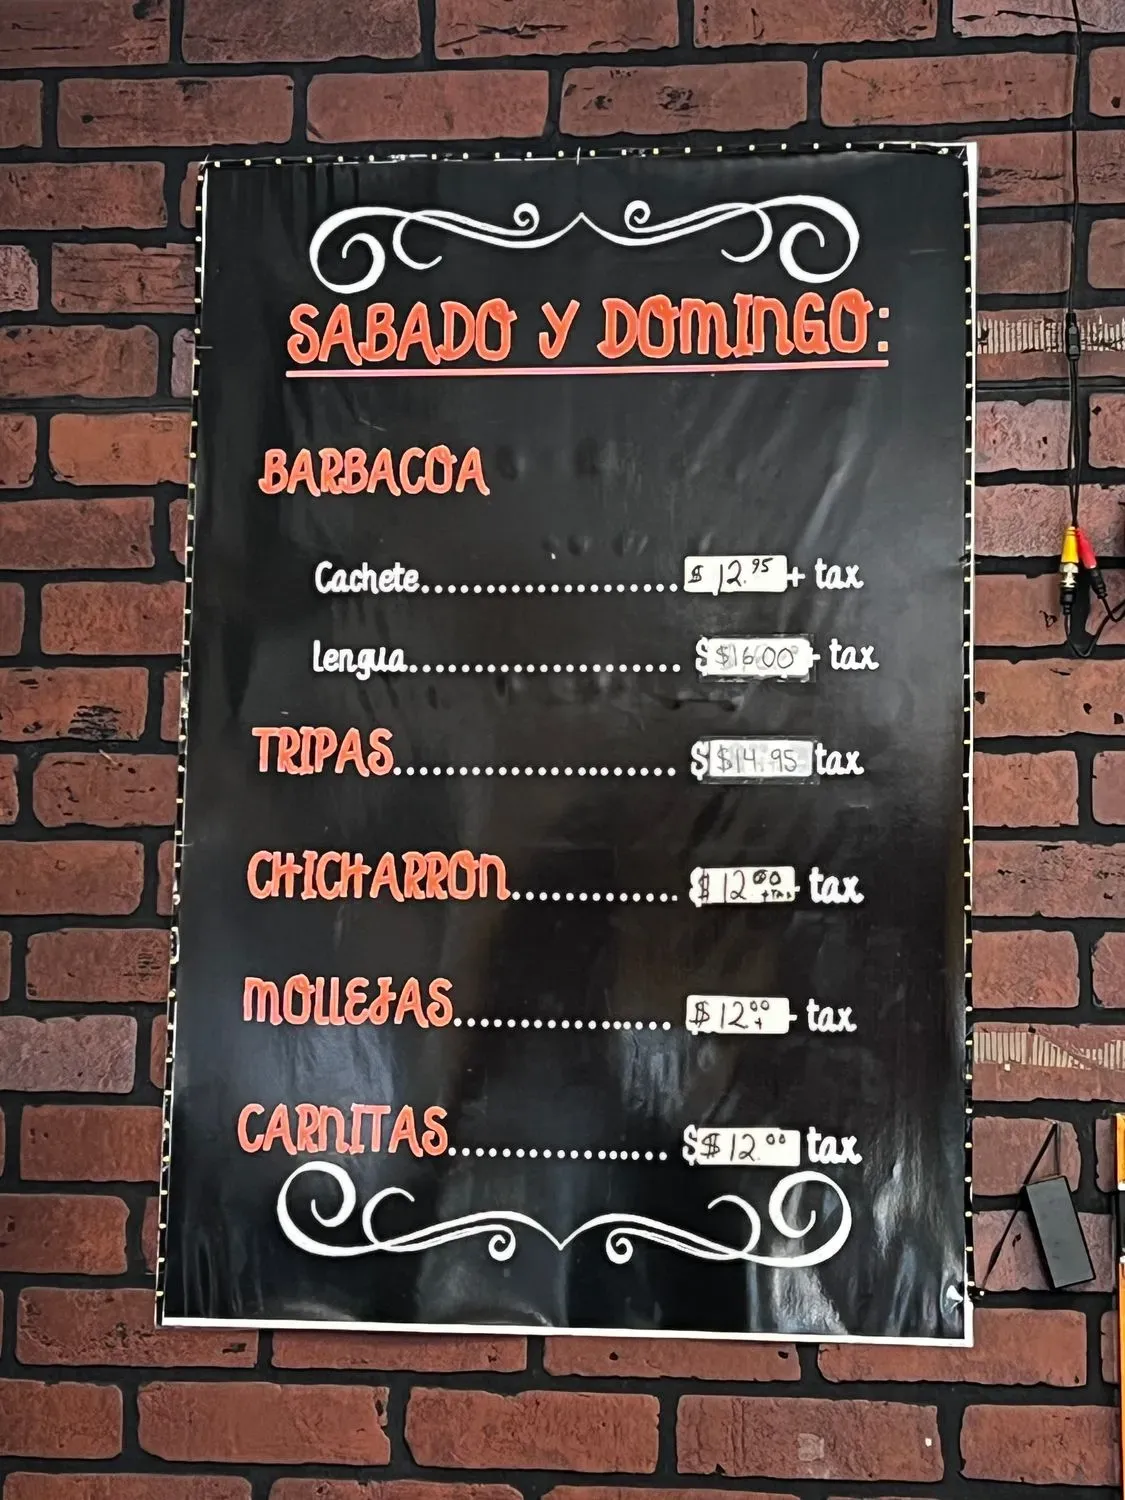 SABADO Y DOMINGO:
BARBACOA
Cachete.............................. $12.95 + tax
lengua................................ $ $16.00 - tax
TRIPAS................................ $ $14.95 tax
CHICHARRON.................... $12 00 +TAX - tax
MOLLEJAS......................... $12 00 + - tax
CARNITAS......................... $ $12.00 tax